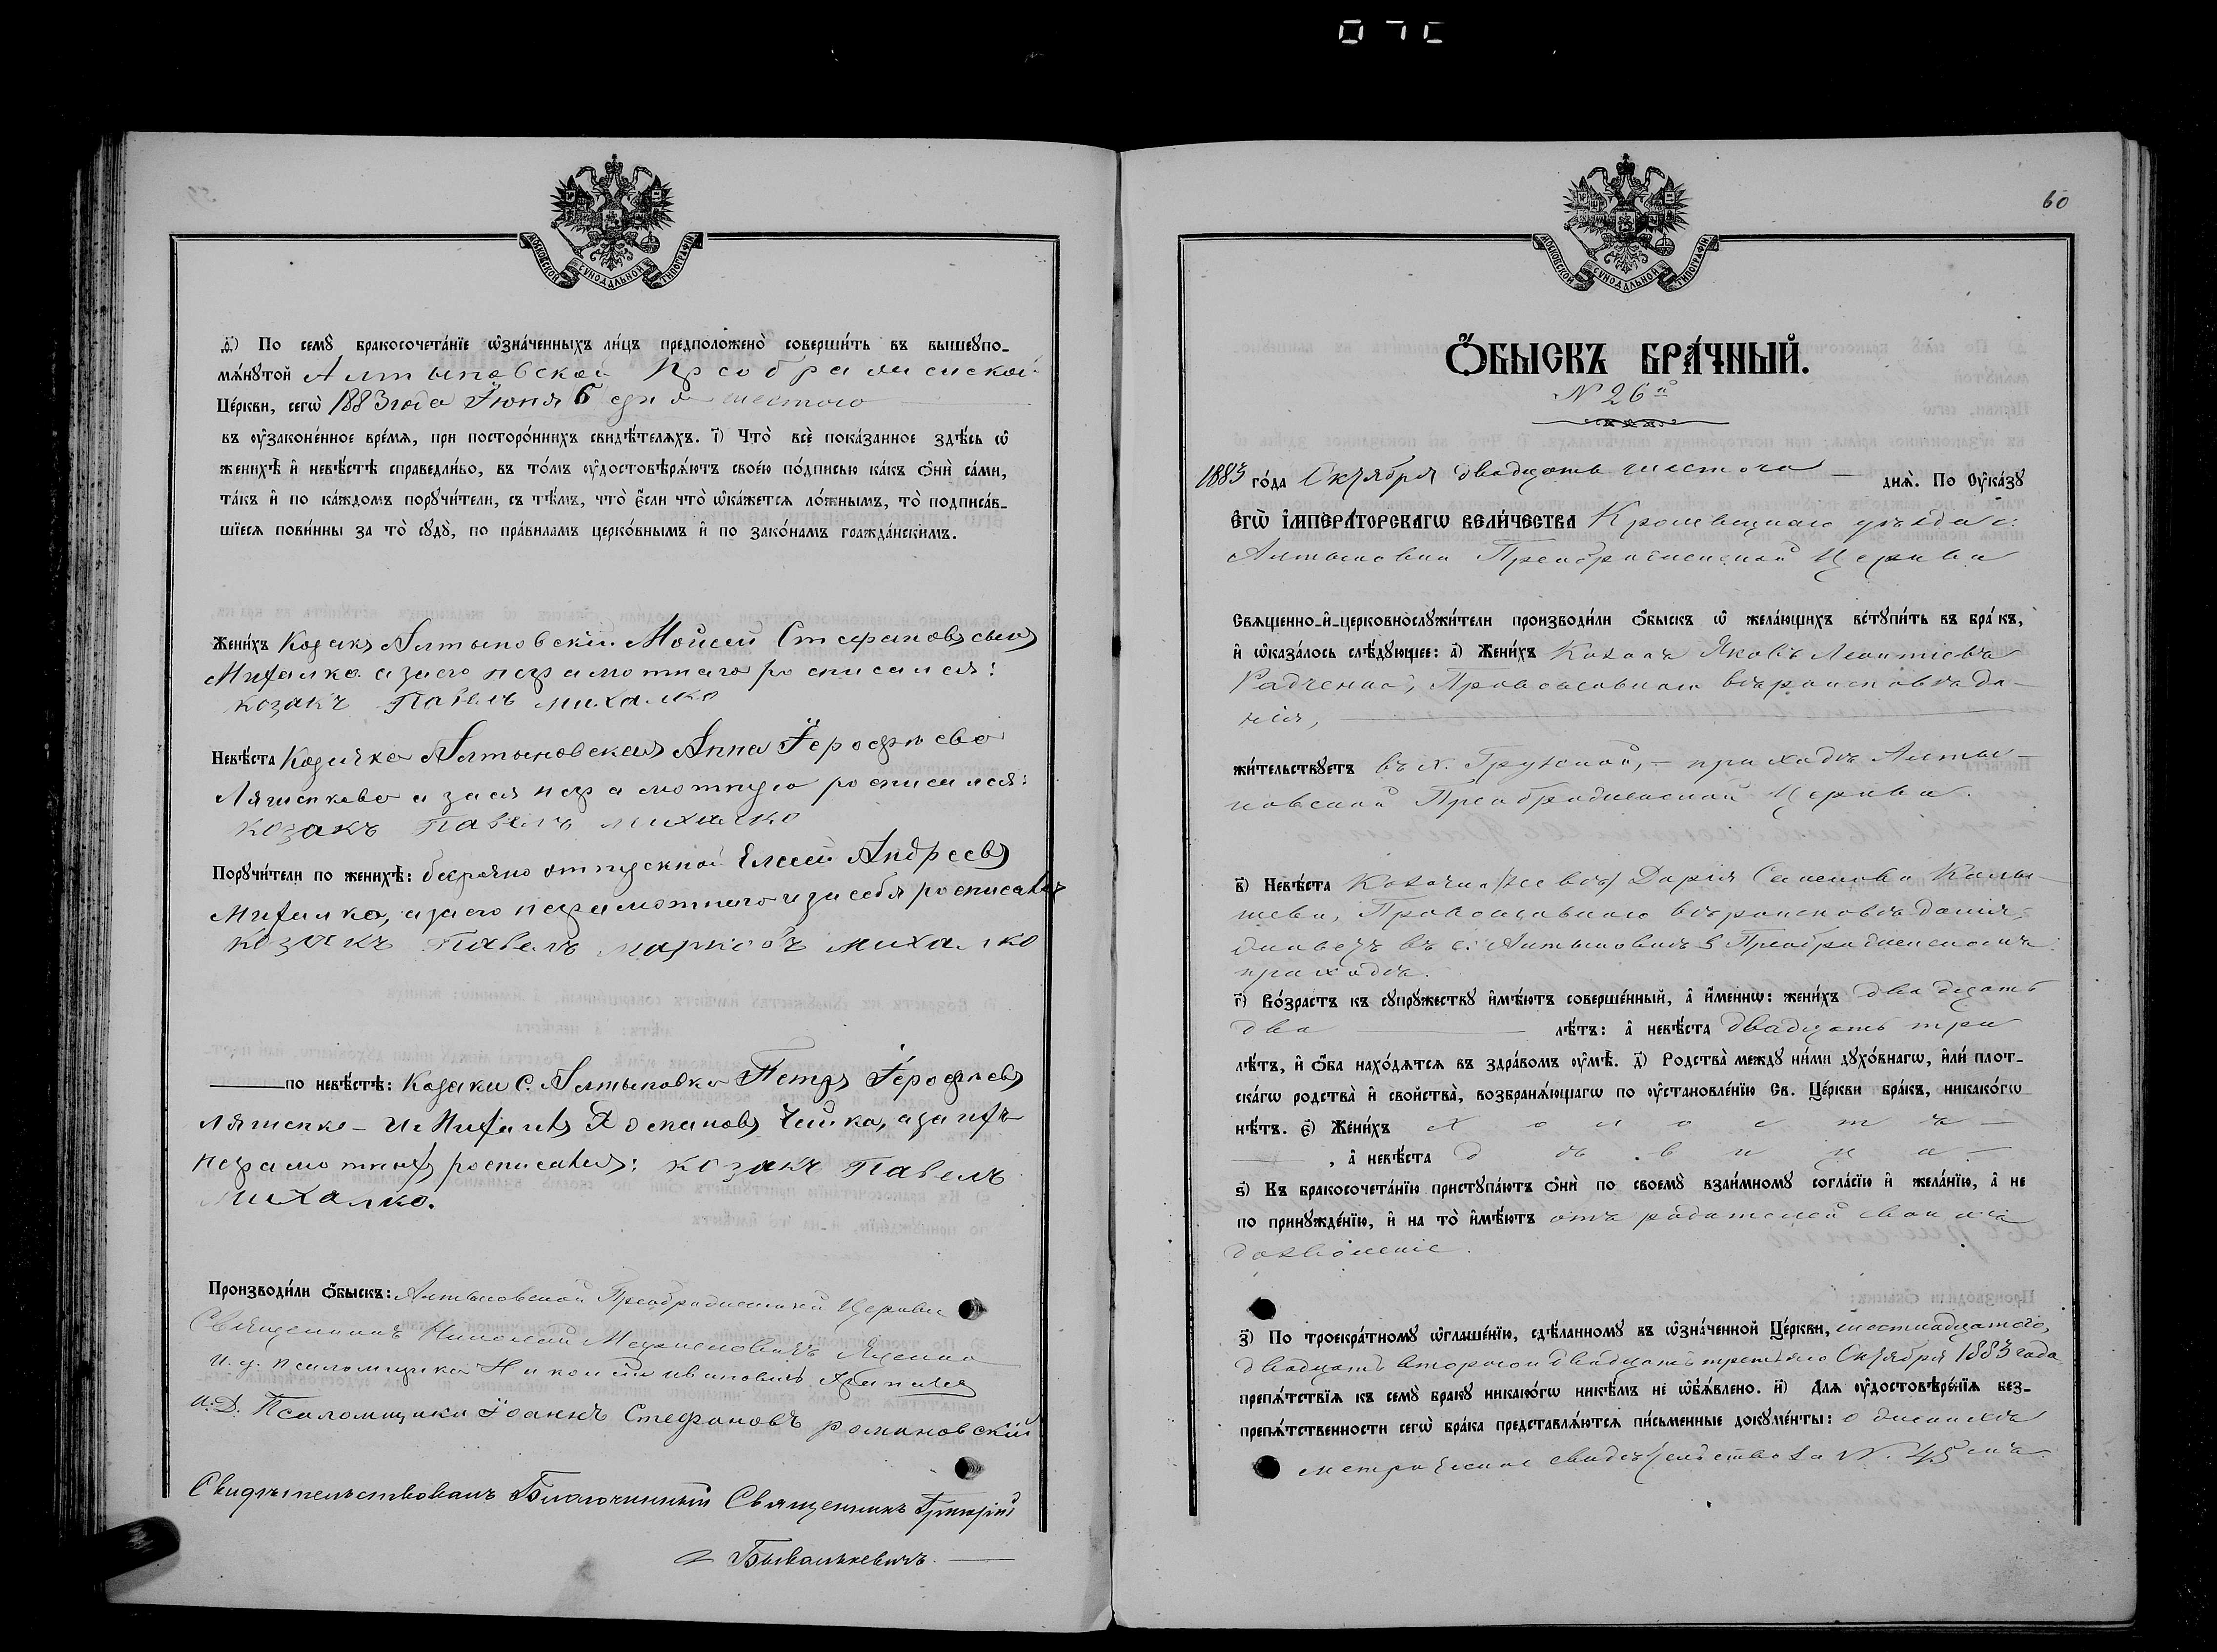 МОСКОВСКОЙ СУНОДАЛЬНОЙ ТИПОГРАФІИ
Ѳ҃) По семꙋ̀ бракосочета́нїе ѡ҆зна́ченныхъ ли́цъ предположено̀ соверши́ть въ вышеꙋпо-
мѧ́нꙋтой Алтыновской Преображенской
Це́ркви, сегѡ̀ 1883 года Іюня 6 дня шестого
въ ᲂу҆зако́ненное вре́мѧ, при посторо́ннихъ свидѣ́телѧхъ. і҃) Что̀ всѐ пока́занное здѣ́сь ѡ҆
женихѣ̀ и҆ невѣ́стѣ справедли́во, въ то́мъ ᲂу҆достовѣрѧ́ютъ свое́ю по́дписью ка́къ ѻ҆нѝ са́ми,
та́къ и҆ по ка́ждомъ порꙋчи́тели, съ тѣ́мъ, что̀ є҆́сли что̀ ѡ҆ка́жетсѧ ло́жнымъ, то̀ подписа́в-
шїесѧ пови́нны за то̀ сꙋдꙋ̀, по пра́виламъ церко́внымъ и҆ по зако́намъ гражда́нскимъ.
Жени́хъ Козакъ Алтыновскій Мойсей Стефановъ сынъ
Михалко а за его неграмотнаго росписался:
козакъ Павелъ Михалко
Невѣ́ста Козачка Алтыновская Анна Іерофѣева
Ляшенкова а за ея неграмотную росписался:
козакъ Павелъ Михалко
Порꙋчи́тели по женихѣ̀: безсрочно отпускной Елисей Андреевъ
Михалко, а за его неграмотнаго и за себя росписался
козакъ Павелъ Марковъ Михалко
по невѣ́стѣ: Козаки с. Алтыновки Петръ Іерофѣевъ
Ляшенко и Чайка, а за ихъ
неграмотныхъ росписался: козакъ Павелъ
Михалко.
Производи́ли ѻ҆́быскъ: Алтыновской Преображенской Церкви
Священникъ Николай
и. д. псаломщика Николай Ивановичъ
И. Д. Псаломщика Іоаннъ Стефановъ Романовскій
Свидѣтельствовалъ Благочинный Священникъ Григорій
Бывалькевичъ.
60
МОСКОВСКОЙ СУНОДАЛЬНОЙ ТИПОГРАФІИ
Ѻ҆́БЫСКЪ БРА́ЧНЫЙ.
№ 26й
1883 го́да Октября двадцать шестого днѧ̀. По Оу҆ка́зꙋ
Є҆гѡ̀ І҆мпера́торскагѡ вели́чества Кролевецкаго уѣзда с.
Алтыновки Преображенской Церкви
Свѧщенно-и҆-церковнослꙋжи́тели производи́ли ѻ҆́быскъ ѡ҆ жела́ющихъ встꙋпи́ть въ бра́къ,
и҆ ѡ҆каза́лось слѣ́дꙋющее: а҃) Жени́хъ Козакъ Яковъ Леонтіевъ
Радченко, Православнаго вѣроисповѣда-
нія,
жи́тельствꙋетъ въ х. Грузской, – приходѣ Алты-
новской Преображенской Церкви.
в҃) Невѣ́ста Козачка дѣвица Дарія Семенова Калы-
шева, Православнаго вѣроисповѣданія,
живетъ въ с. Алтыновкѣ Преображенскомъ
приходѣ.
г҃) Во́зрастъ къ сꙋпрꙋ́жествꙋ и҆мѣ́ютъ соверше́нный, а҆ и҆́меннѡ: жени́хъ двадцать
два лѣ́тъ: а҆ невѣ́ста двадцать три
лѣ́тъ, и҆ ѻ҆́ба нахо́дѧтсѧ въ здра́вомъ ᲂу҆мѣ̀. д҃) Родства̀ междꙋ ни́ми дꙋхо́внагѡ, и҆лѝ плот-
ска́гѡ родства̀ и҆ свойства̀, возбранѧ́ющагѡ по ᲂу҆становле́нїю Св. Це́ркви бра́къ, никако́гѡ
нѣ́тъ. є҃) Жени́хъ холостъ
, а҆ невѣ́ста дѣвица
ѕ҃) Къ бракосочета́нїю пристꙋпа́ютъ ѻ҆нѝ по своемꙋ̀ взаи́мномꙋ согла́сїю и҆ жела́нїю, а҆ не
по принꙋжде́нїю, и҆ на то̀ и҆мѣ́ютъ отъ родителей своихъ
дозволеніе.
з҃) По троекра́тномꙋ ѡ҆глаше́нїю, сдѣ́ланномꙋ въ ѡ҆зна́ченной Це́ркви, шестнадцатого,
двадцать второго и двадцать третьяго Октября 1883 года
препѧ́тствїѧ къ семꙋ̀ бракꙋ никако́гѡ никѣ́мъ не ѡ҆б̾ѧ́влено. и҃) Длѧ ᲂу҆достовѣре́нїѧ без-
препѧ́тственности сегѡ̀ бра́ка представлѧ́ютсѧ пи́сьменные докꙋме́нты: о женихѣ
метрическое свидѣтельство за № 45мъ